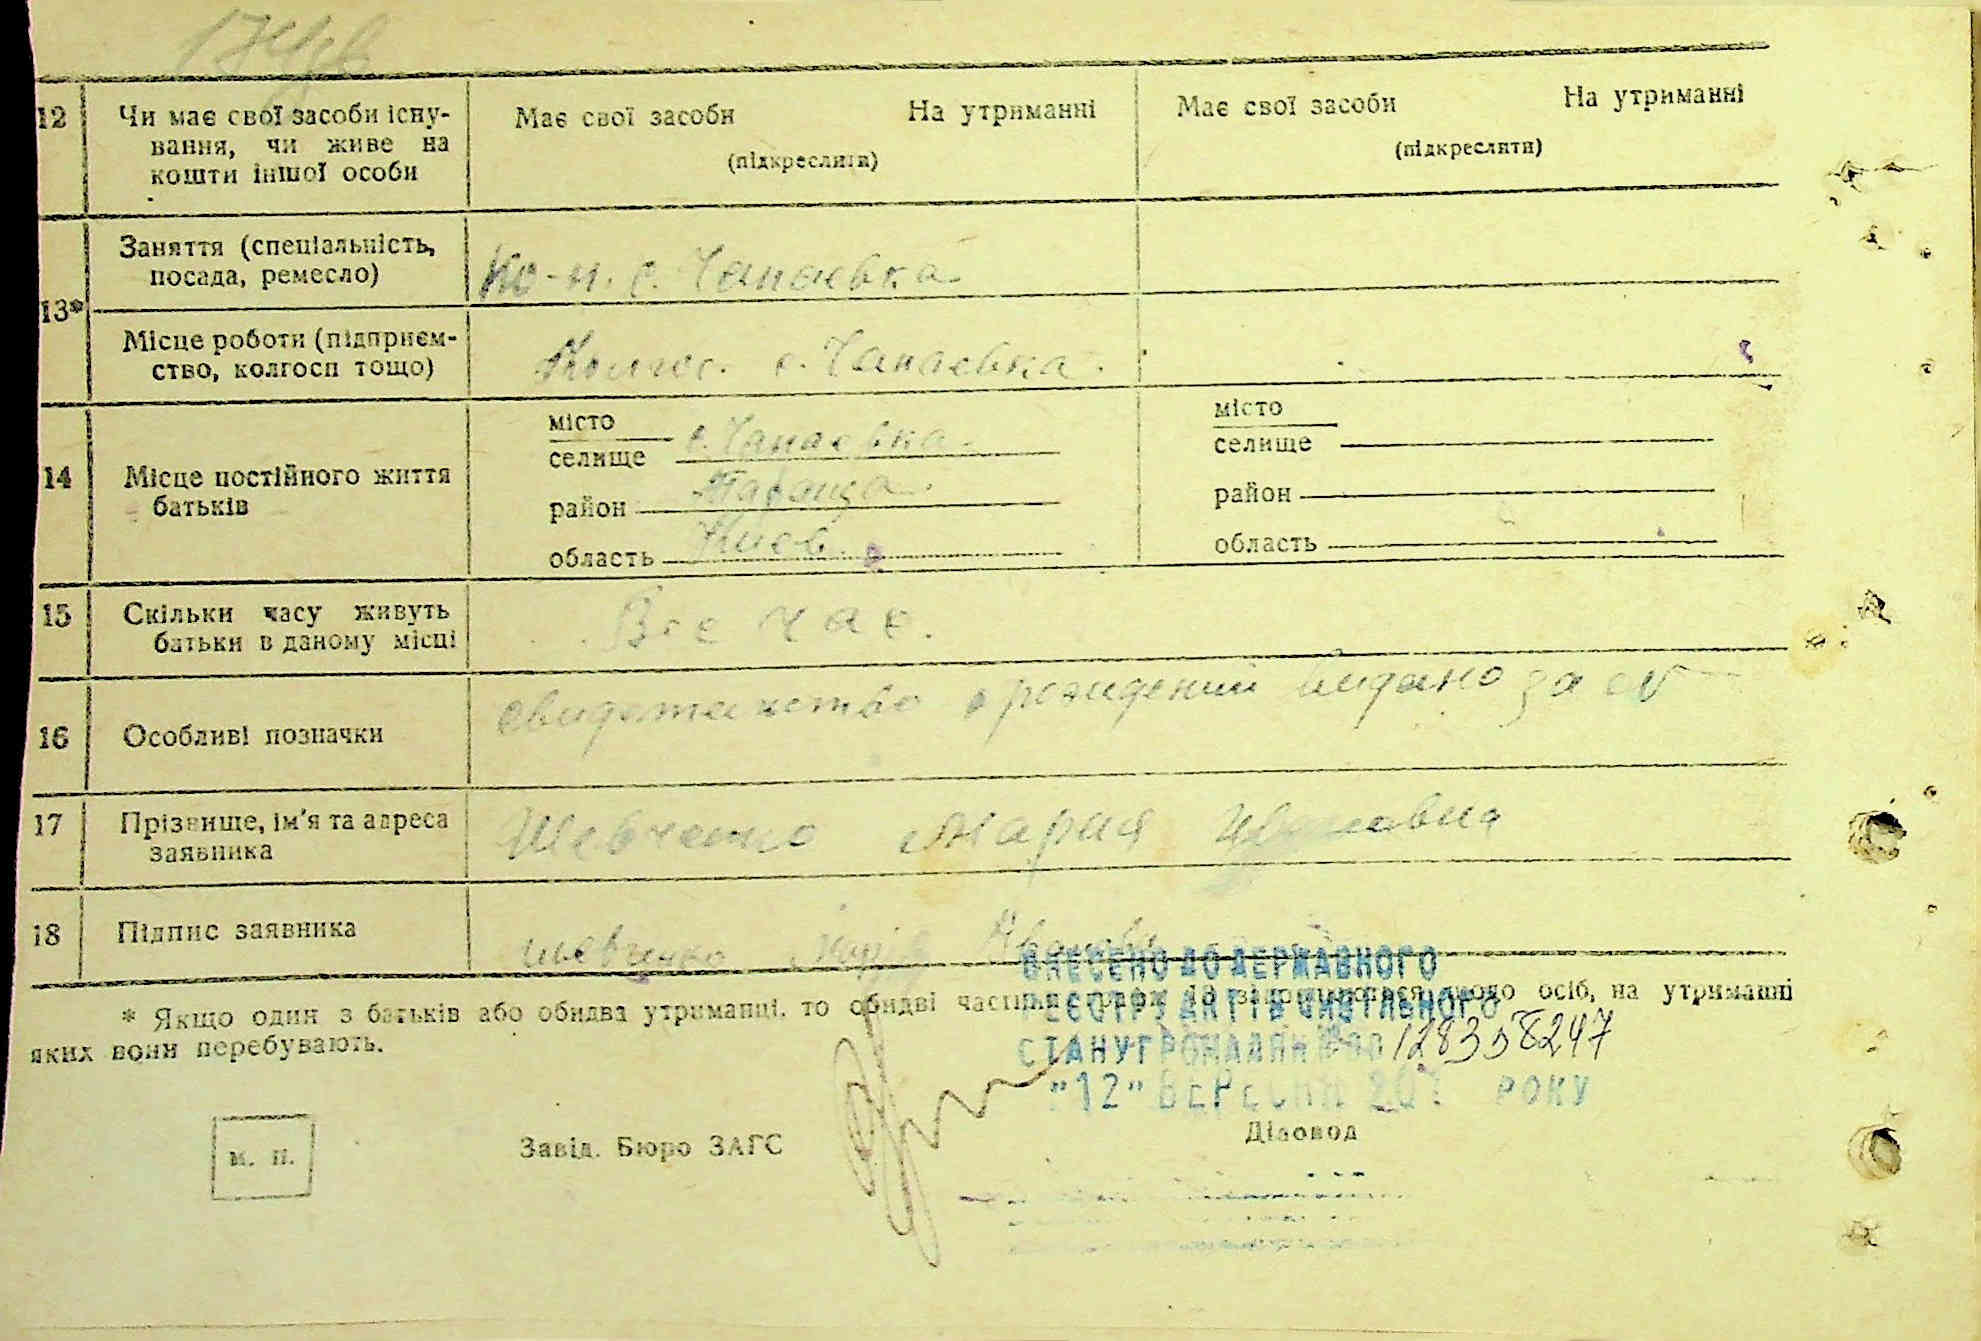 12 Чи має свої засоби існу-
вання, чи живе на
кошти іншої особи
Має свої засоби На утриманні
(підкреслити)
Має свої засоби На утриманні
(підкреслити)
13*
Заняття (спеціальність,
посада, ремесло)
с. Чапаевка
Місце роботи (підприєм-
ство, колгосп тощо)
с. Чапаевка.
14 Місце постійного життя
батьків
місто
селище с. Чапаевка.
район Тараща.
область Киев.
місто
селище
район
область
15 Скільки часу живуть
батьки в даному місці
Все час.
16 Особливі позначки
видано за
17 Прізвище, ім'я та адреса
заявника
Шевченко Мария Ивановна
18 Підпис заявника
Шевченко
* Якщо один з батьків або обидва утриманці, то обидві частини графи 13 заповнюються щодо осіб, на утриманні
яких вони перебувають.
ВНЕСЕНО ДО ДЕРЖАВНОГО
РЕЄСТРУ АКТІВ ЦИВІЛЬНОГО
СТАНУ ГРОМАДЯН 128358247
"12" ВЕРЕСНЯ РОКУ
м. п.
Завід. Бюро ЗАГС
Діловод